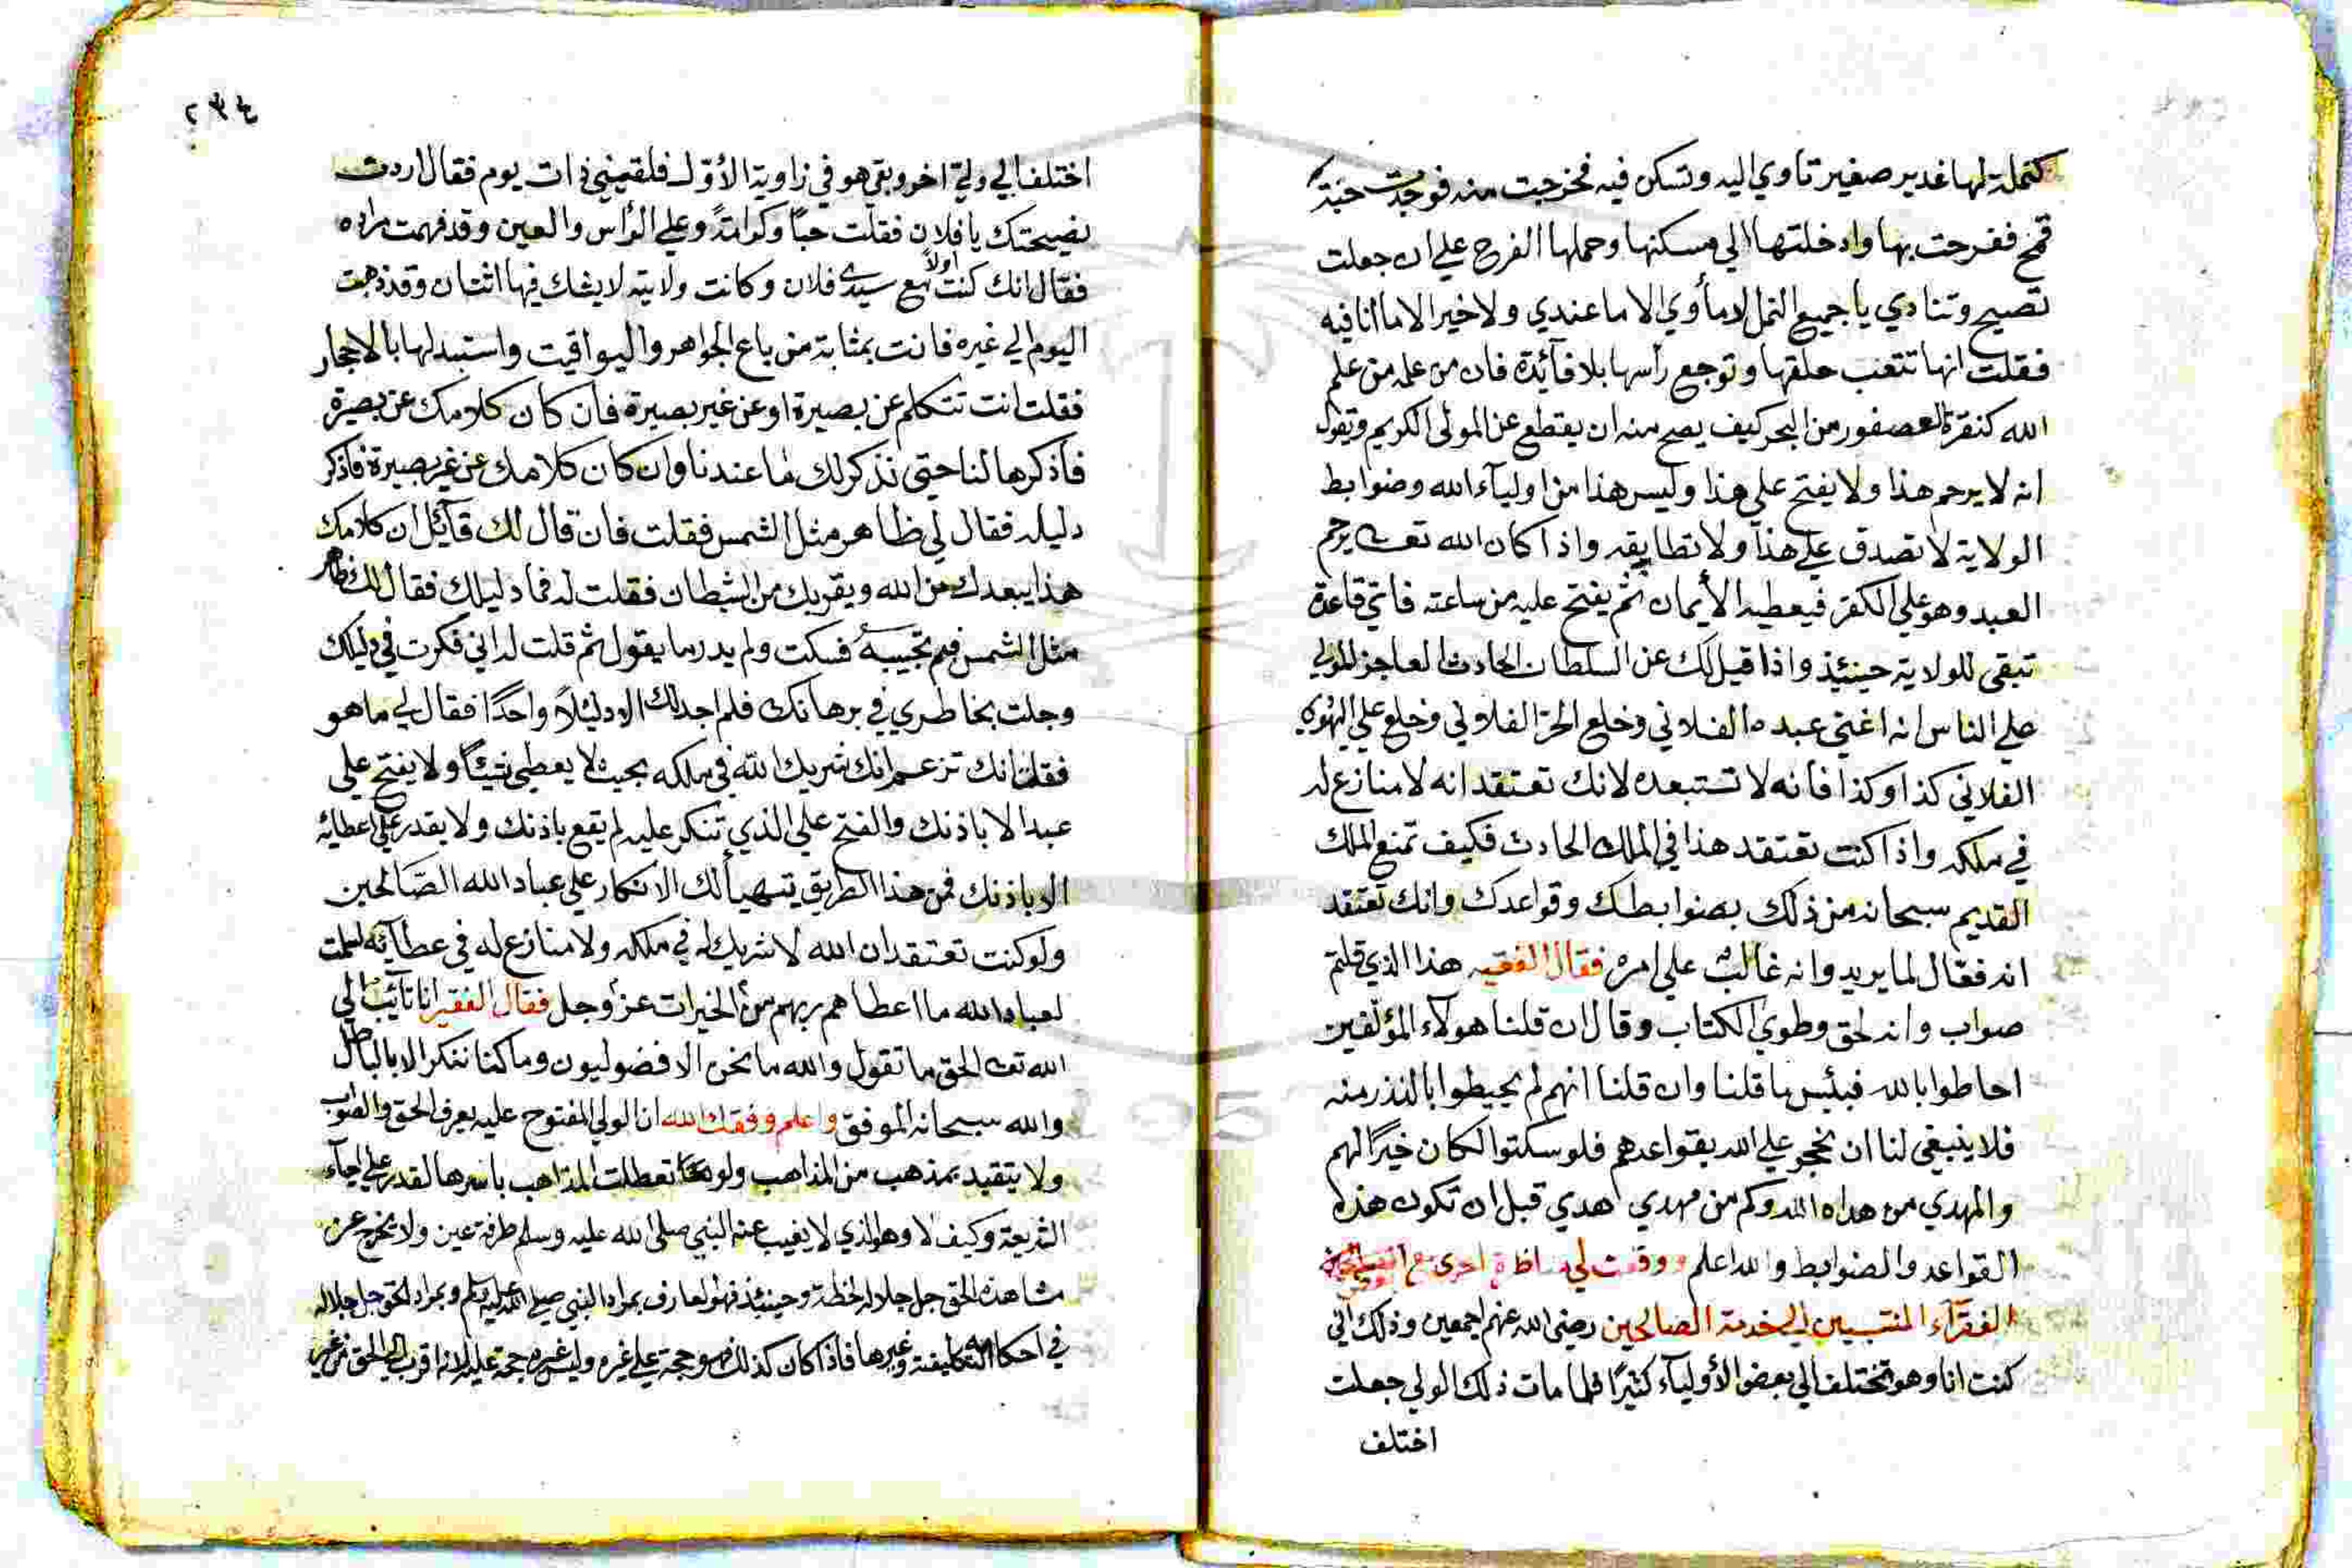 كنملة لها غدير صغير تاوي اليه وتسكن فيه فخرجت منه فوجدت حبة
قمح ففرحت بها وادخلتها الي مسكنها وحملها الفرح علي ان جعلت
تصيح وتنادي يا جميع النمل لا مأوي الا ما عندي ولا خير الا ما انا فيه
فقلت انها تتعب حلقها وتوجع رأسها بلا فآئدة فان من علمه من علم
الله كنقرة العصفور من البحر كيف يصح منه ان يقتطع عن المولي الكريم وتقول
انه لا يرحم هذا ولا يفتح علي هذا وليس هذا من اوليآء الله وضوابط
الولاية لا تصدق علي هذا ولا تطابقه واذا كان الله تعــ يرحم
العبد وهو علي الكفر فيعطيه الأيمان ثم يفتح عليه من ساعته فاي قاعدة
تبقي للولاية حينئذ واذا قيل لك عن السلطان الحادث العاجز المولي
علي الناس انه اغني عبده الفلاني وخلع الحر الفلاني وخلع علي اليهودي
الفلاني كذا وكذا فانه لا تستبعده لانك تعتقد انه لا منازع له
في ملكه واذا كنت تعتقد هذا في الملك الحادث فكيف تمنع الملك
القديم سبحانه من ذلك بضوابطك وقواعدك وانك تعتقد
انه فعال لما يريد وانه غالب علي امره فقال الفقيه هذا الذي قلتم
صواب وانه لحق وطوي الكتاب وقال ان قلنا هولآء المؤلفين
احاطوا بالله فبئس ما قلنا وان قلنا انهم لم يحيطوا بالنذر منه
فلا ينبغي لنا ان نحجر علي الله بقواعدهم فلو سكتوا لكان خيرًا لهم
والمهدي من هداه الله وكم من مهدي هدي قبل ان تكون هذه
القواعد والضوابط والله اعلم ووقعت لي مناظرة اخري مع
الفقرآء المنتسبين الي خدمة الصالحين رضي الله عنهم اجمعين وذلك اني
كنت انا وهو نختلف الي بعض الأوليآء كثيرًا فلما مات ذلك الولي جعلت
اختلف
٢٣٤
اختلف الي ولي اخر وبقي هو في زاوية الأول فلقيني ذات يوم فقال اردت
نصيحتك يا فلان فقلت حبًا وكرامةً وعلي الرأس والعين وقد فهمت مراده
فقال انك كنت اولاً مع سيدي فلان وكانت ولايته لا يشك فيها اثنان وقد ذهبت
اليوم الي غيره فانت بمثابة من باع الجواهر واليواقيت واستبدلها بالاحجار
فقلت انت تتكلم عن بصيرة او عن غير بصيرة فان كان كلامك عن بصيرة
فاذكرها لنا حتي نذكر لك ما عندنا وان كان كلامك عن غير بصيرة فاذكر
دليله فقال لي ظاهر مثل الشمس فقلت فان قال لك قآئل ان كلامك
هذا يبعدك من الله ويقربك من الشيطان فقلت له فما دليلك فقال لك ظاهر
مثل الشمس فبم تجيبه فسكت ولم يدر ما يقول ثم قلت له اني فكرت في دليلك
وجلت بخاطري في برهانك فلم اجد لك الا دليلاً واحدًا فقال لي ما هو
فقلت انك تزعم انك شريك الله في ملكه بحيث لا يعطي شيئًا ولا يفتح علي
عبد الا باذنك والفتح علي الذي تنكر عليه لم يقع باذنك ولا يقدر علي اعطائه
الا باذنك فمن هذا الطريق يتهيأ لك الانكار علي عباد الله الصالحين
ولو كنت تعتقد ان الله لا شريك له في ملكه ولا منازع له في عطآئه لسلمت
لعباد الله ما اعطاهم ربهم من الخيرات عز وجل فقال الفقير انا تآئب الي
الله تعــ الحق ما تقول والله ما نحن الا فضوليون وما كنا ننكر الا بالباطل
والله سبحانه الموفق واعلم وفقك الله ان الولي المفتوح عليه يعرف الحق والصواب
ولا يتقيد بمذهب من المذاهب ولو تعطلت المذاهب باسرها لقدر علي احيآء
الشريعة وكيف لا وهو الذي لا يغيب عنه النبي صلي الله عليه وسلم طرفة عين ولا يخرج عن
مشاهدة الحق جل جلاله لحظة وحينئذ فهو العارف بمراد النبي صلي الله عليه وسلم وبمراد الحق جل جلاله
في احكامه التكليفية وغيرها فاذا كان كذلك فهو حجة علي غيره وليس غيره حجة عليه لانه اقرب الي الحق من غير